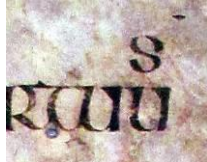 s
rtuu